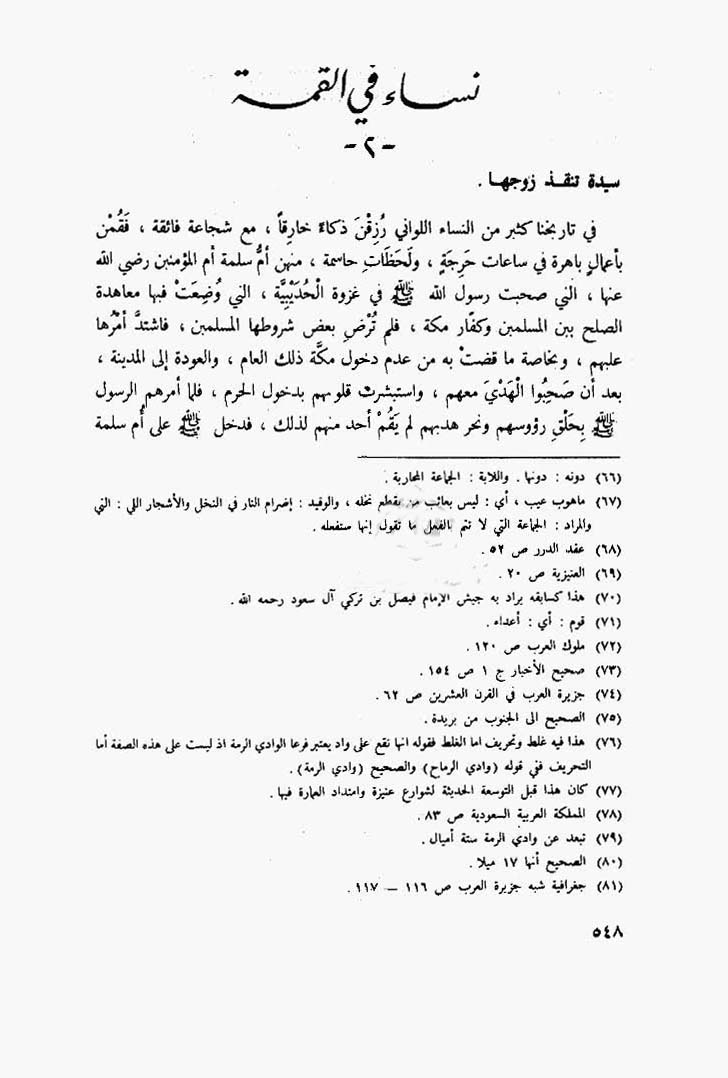 نساء في القمة
-٢-
سيدة تنقذ زوجها .
في تاريخنا كثير من النساء اللواتي رُزِقْنَ ذكاءً خارِقاً ، مع شجاعة فائقة ، فَقُمْن
بأعمالٍ باهرة في ساعات حَرِجَةٍ ، ولَحَظَاتِ حاسمة ، منهن أمُّ سلمة أم المؤمنين رضي الله
عنها ، التي صحبت رسول الله ﷺ في غزوة الْحُدَيْبِيَّة ، التي وُضِعَتْ فيها معاهدة
الصلح بين المسلمين وكفّار مكة ، فلم تُرْضِ بعض شروطها المسلمين ، فاشتدَّ أمْرُها
عليهم ، وبخاصة ما قضتْ به من عدم دخول مكَّة ذلك العام ، والعودة إلى المدينة ،
بعد أن صَحِبُوا الْهَدْيَ معهم ، واستبشرت قلوبهم بدخول الحرم ، فلما أمرهم الرسول
ﷺ بِحَلْقِ رؤوسهم ونحر هديهم لم يَقُمْ أحد منهم لذلك ، فدخل ﷺ على أُم سلمة
(٦٦) دونه : دونها . واللابة : الجماعة المحاربة .
(٦٧) ماهوب عيب ، أي : ليس بعائب من يقطع نخله ، والوقيد : إضرام النار في النخل والأشجار اللي : التي
والمراد : الجماعة التي لا تتم بالفعل ما تقول إنها ستفعله .
(٦٨) عقد الدرر ص ٥٢ .
(٦٩) العنيزية ص ٢٠ .
(٧٠) هذا كسابقه يراد به جيش الإمام فيصل بن تركي آل سعود رحمه الله .
(٧١) قوم : أي : أعداء .
(٧٢) ملوك العرب ص ١٢٠ .
(٧٣) صحيح الأخبار ج ١ ص ١٥٤ .
(٧٤) جزيرة العرب في القرن العشرين ص ٦٢ .
(٧٥) الصحيح الى الجنوب من بريدة .
(٧٦) هذا فيه غلط وتحريف اما الغلط فقوله انها نقع على واد يعتبر فرعا الوادي الرمة اذ ليست على هذه الصفة أما
التحريف ففي قوله (وادي الرماح) والصحيح (وادي الرمة) .
(٧٧) كان هذا قبل التوسعة الحديثة لشوارع عنيزة وامتداد العمارة فيها .
(٧٨) المملكة العربية السعودية ص ٨٣ .
(٧٩) تبعد عن وادي الرمة ستة أميال .
(٨٠) الصحيح أنها ١٧ ميلا .
(٨١) جغرافية شبه جزيرة العرب ص ١١٦ – ١١٧ .
٥٤٨